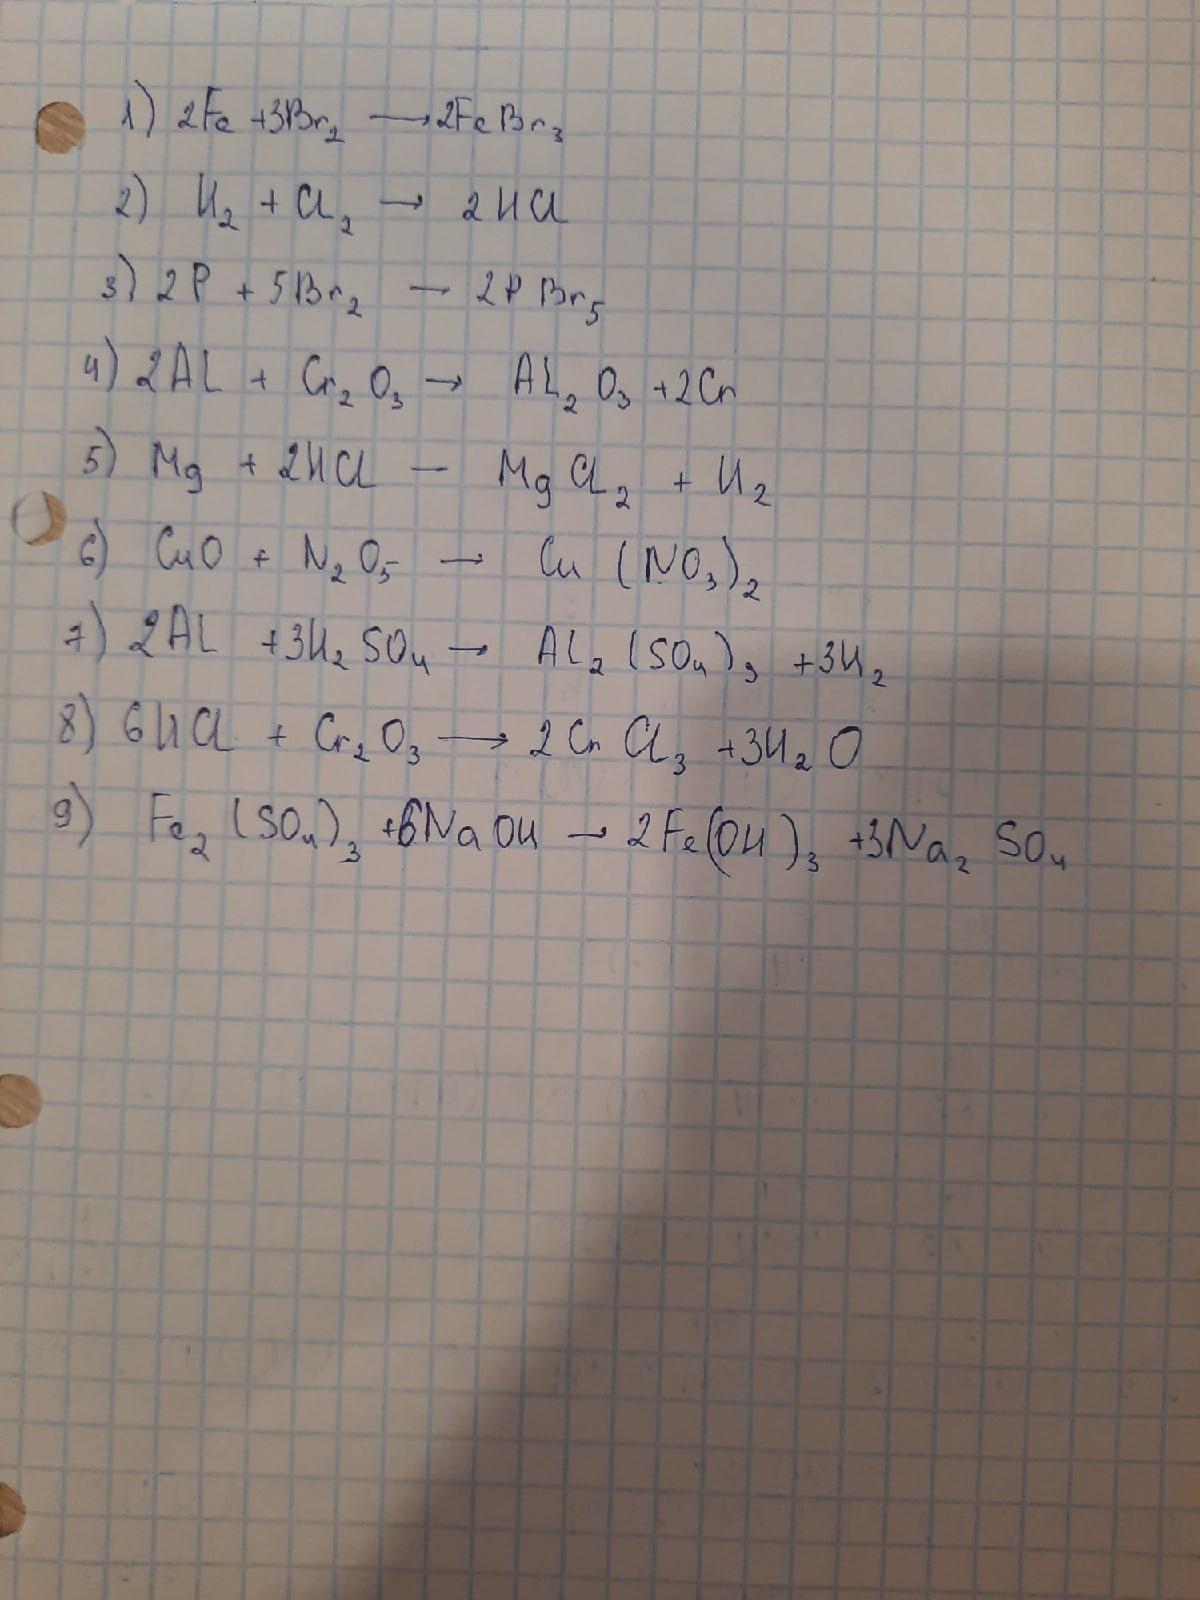 1) 2Fe +3Br₂ → 2FeBr₃
2) H₂ + Cl₂ → 2HCl
3) 2P + 5Br₂ — 2PBr₅
4) 2Al + Cr₂O₃ → Al₂O₃ +2Cr
5) Mg + 2HCl — MgCl₂ + H₂
6) CuO + N₂O₅ → Cu(NO₃)₂
7) 2Al +3H₂SO₄ → Al₂(SO₄)₃ +3H₂
8) 6HCl + Cr₂O₃ → 2CrCl₃ +3H₂O
9) Fe₂(SO₄)₃ +6NaOH → 2Fe(OH)₃ +3Na₂SO₄